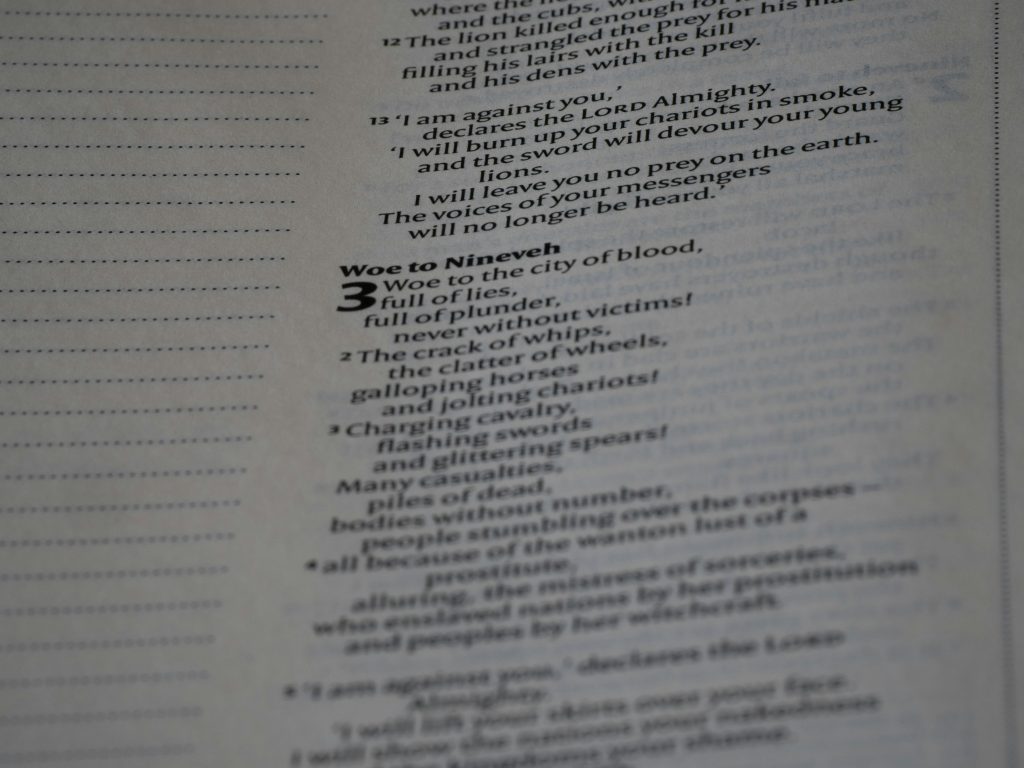 where the
and the cubs,
12 The lion killed enough for
and strangled the prey for his
filling his lairs with the kill
and his dens with the prey.
13 ‘I am against you,’
declares the LORD Almighty.
‘I will burn up your chariots in smoke,
and the sword will devour your young
lions.
I will leave you no prey on the earth.
The voices of your messengers
will no longer be heard.’
Woe to Nineveh
3 Woe to the city of blood,
full of lies,
full of plunder,
never without victims!
2 The crack of whips,
the clatter of wheels,
galloping horses
and jolting chariots!
3 Charging cavalry,
flashing swords
and glittering spears!
Many casualties,
piles of dead,
bodies without number,
people stumbling over the corpses –
4 all because of the wanton lust of a
prostitute,
alluring, the mistress of sorceries,
who enslaved nations by her prostitution
and peoples by her witchcraft.
5 ‘I am against you,’ declares the LORD
Almighty.
‘I will lift your skirts over your face.
I will show the nations your nakedness
your shame.